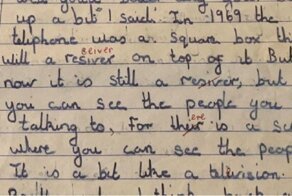 up a bit" I said. In 1969 the
telephone was a square box thi
will a resiver on top of it But
ceiver
now it is still a resiver, but
you can see the people you
talking to, For thier is a sc
ere
where you can see the peop
It is a bit like a television.